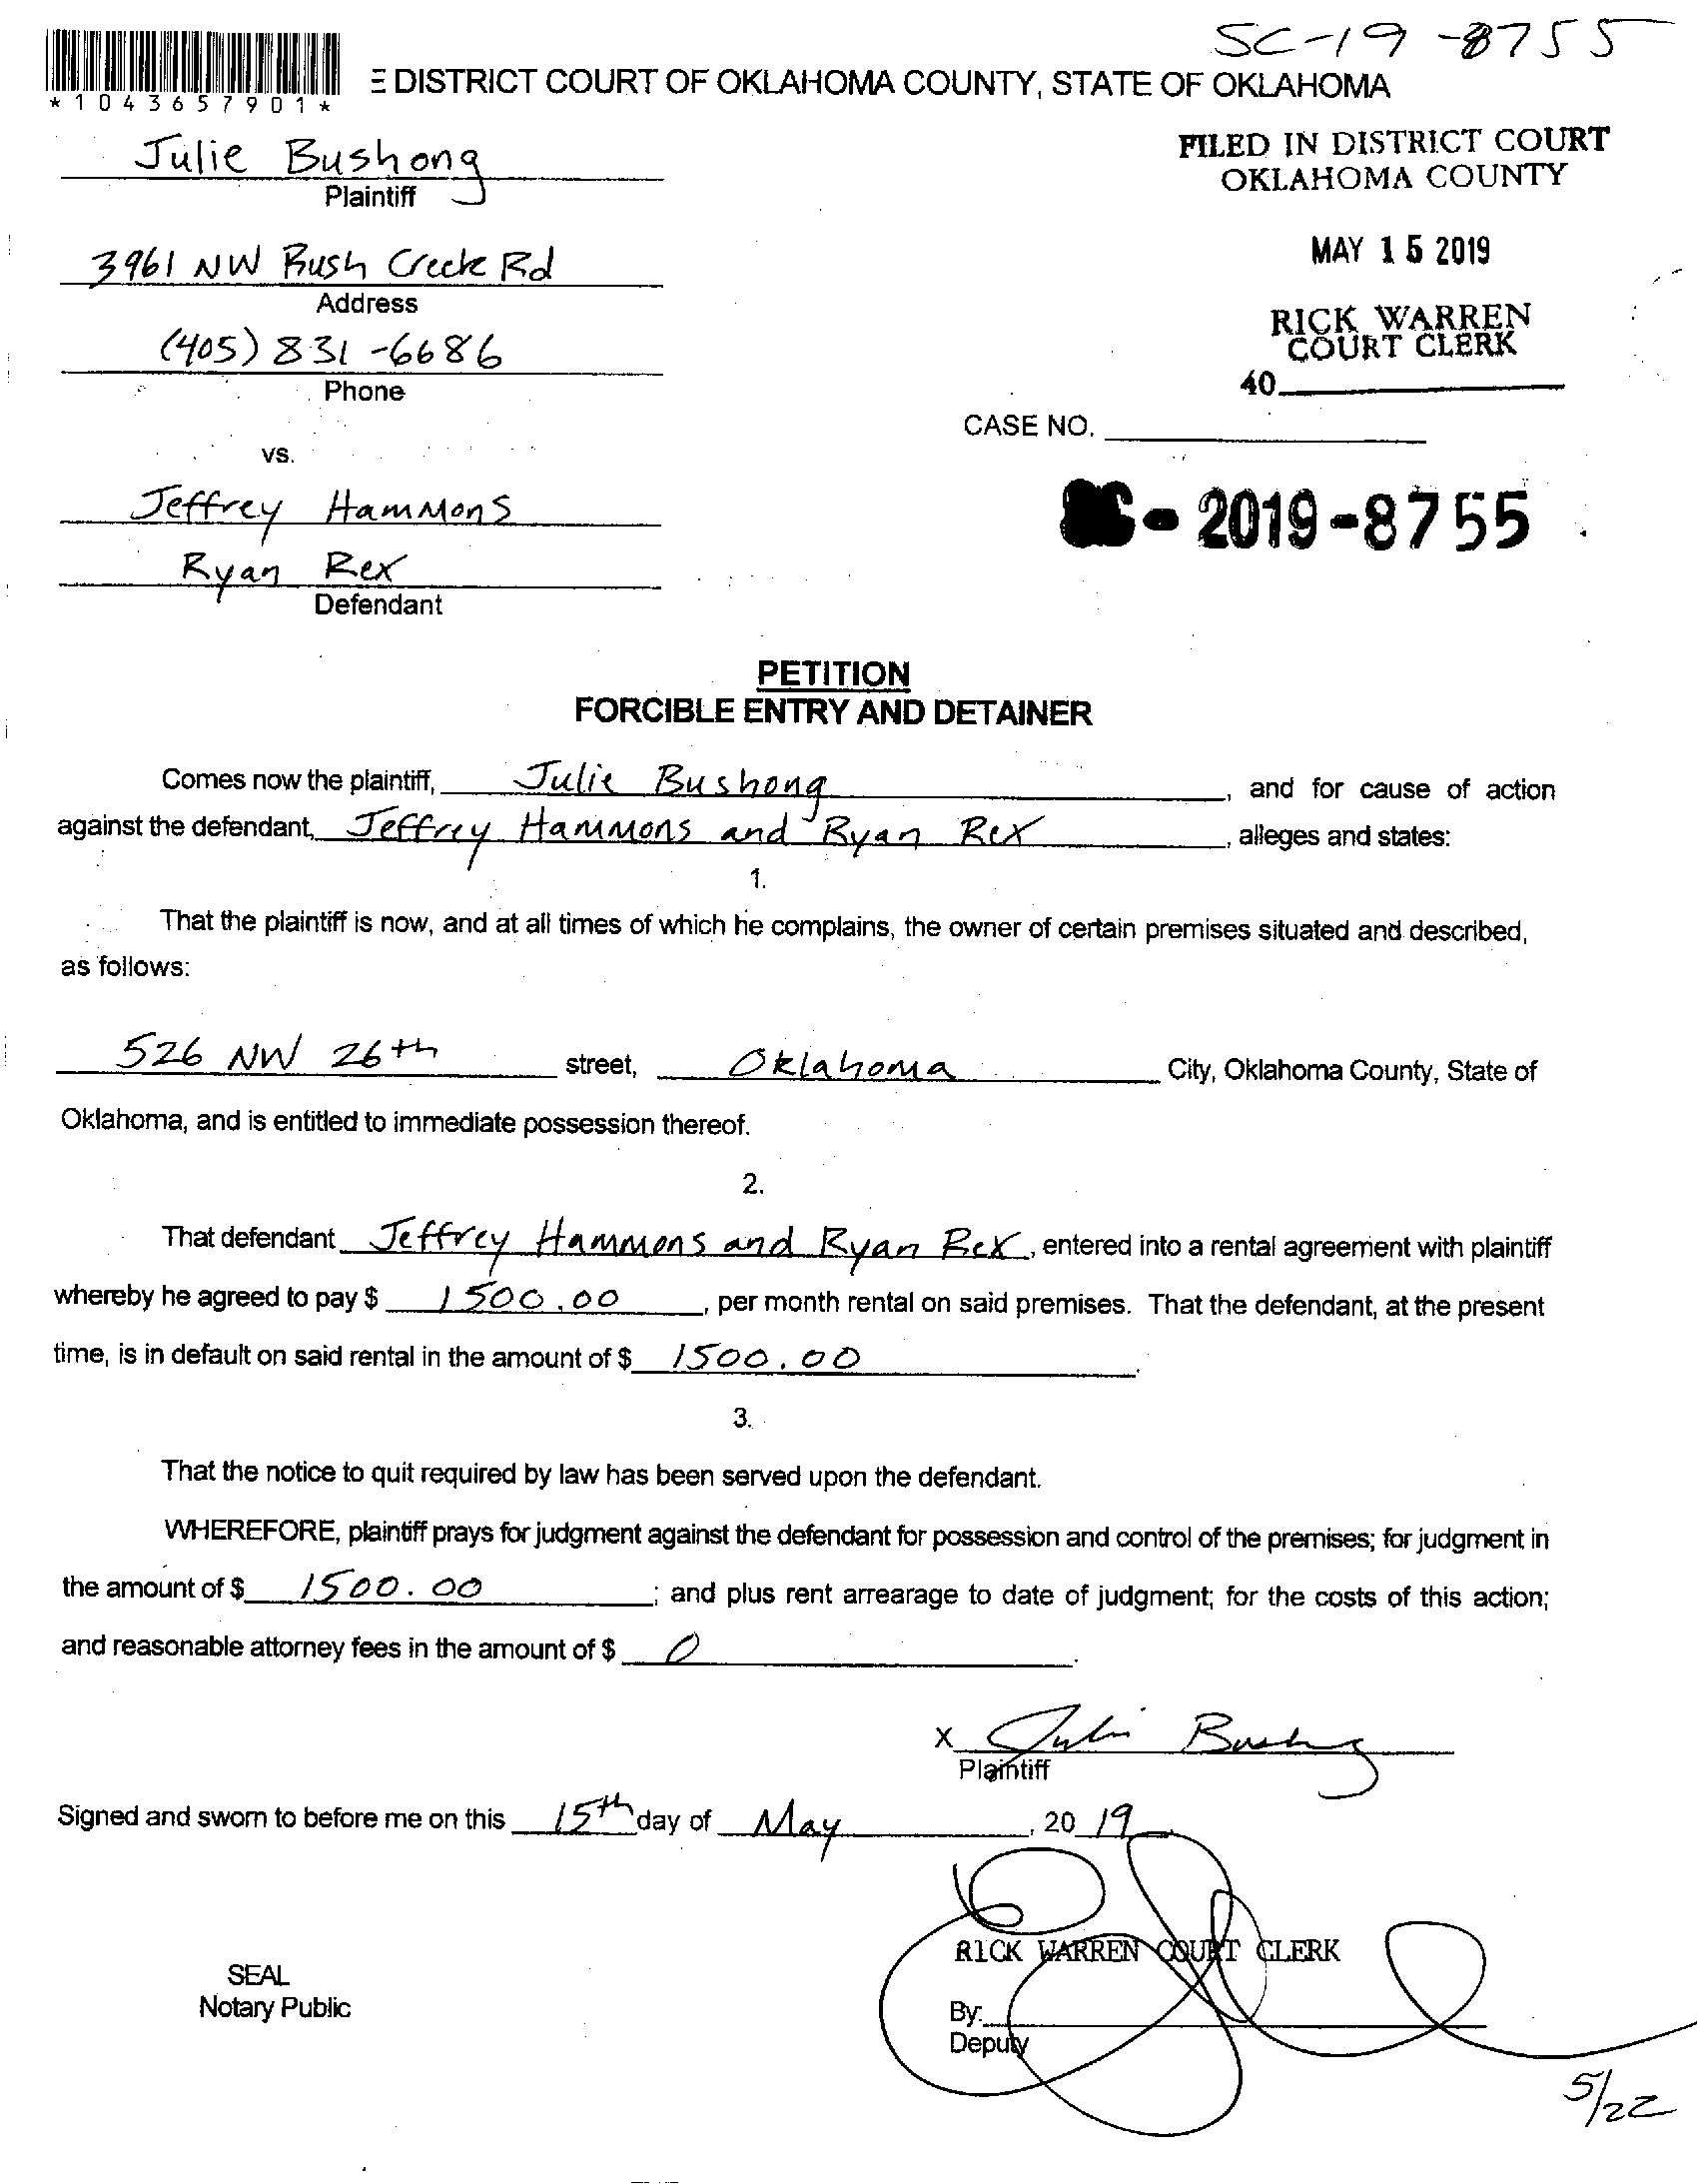 SC-19-8755
DISTRICT COURT OF OKLAHOMA COUNTY, STATE OF OKLAHOMA
*1043657901*
FILED IN DISTRICT COURT
OKLAHOMA COUNTY
Julie Bushong
Plaintiff
MAY 15 2019
3961 NW Rush Creek Rd
Address
RICK WARREN
COURT CLERK
(405) 831-6686
Phone
40
CASE NO.
vs.
Jeffrey Hammons
- 2019-8755
Ryan Rex
Defendant
PETITION
FORCIBLE ENTRY AND DETAINER
Comes now the plaintiff, Julie Bushong, and for cause of action
against the defendant, Jeffrey Hammons and Ryan Rex, alleges and states:
1.
That the plaintiff is now, and at all times of which he complains, the owner of certain premises situated and described,
as follows:
526 NW 26th street, Oklahoma City, Oklahoma County, State of
Oklahoma, and is entitled to immediate possession thereof.
2.
That defendant Jeffrey Hammons and Ryan Rex, entered into a rental agreement with plaintiff
whereby he agreed to pay $ 1500.00, per month rental on said premises. That the defendant, at the present
time, is in default on said rental in the amount of $ 1500.00.
3.
That the notice to quit required by law has been served upon the defendant.
WHEREFORE, plaintiff prays for judgment against the defendant for possession and control of the premises; for judgment in
the amount of $ 1500.00; and plus rent arrearage to date of judgment; for the costs of this action;
and reasonable attorney fees in the amount of $ 0.
X Julie Bushong
Plaintiff
Signed and sworn to before me on this 15th day of May, 20 19
RICK WARREN COURT CLERK
SEAL
Notary Public
By:
Deputy
5/22